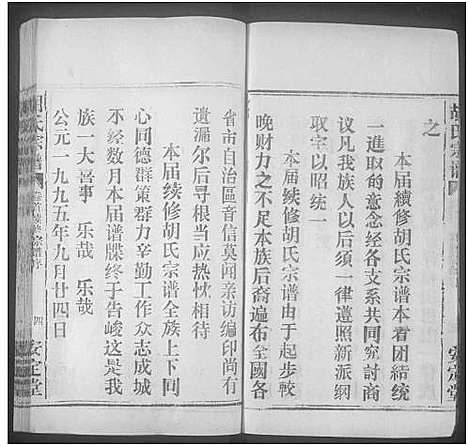 胡氏宗谱
安定堂
之
本届續修胡氏宗谱本着团结统
一進取的意念经各支系共同究討商
议凡我族人以后须一律遵照新派綱
取字以昭统一
本届续修胡氏宗谱由于起步較
晚财力之不足本族后裔遍布全國各
省市自治區音信莫闻亲访编印尚有
遗漏尔后寻根当应热忱相待
本届续修胡氏宗谱全族上下同
心同德群策群力辛勤工作众志成城
不经数月本届谱牒终于告峻这是我
族一大喜事 乐哉 乐哉
公元一九九五年九月廿四日
胡氏宗谱
四
安定堂